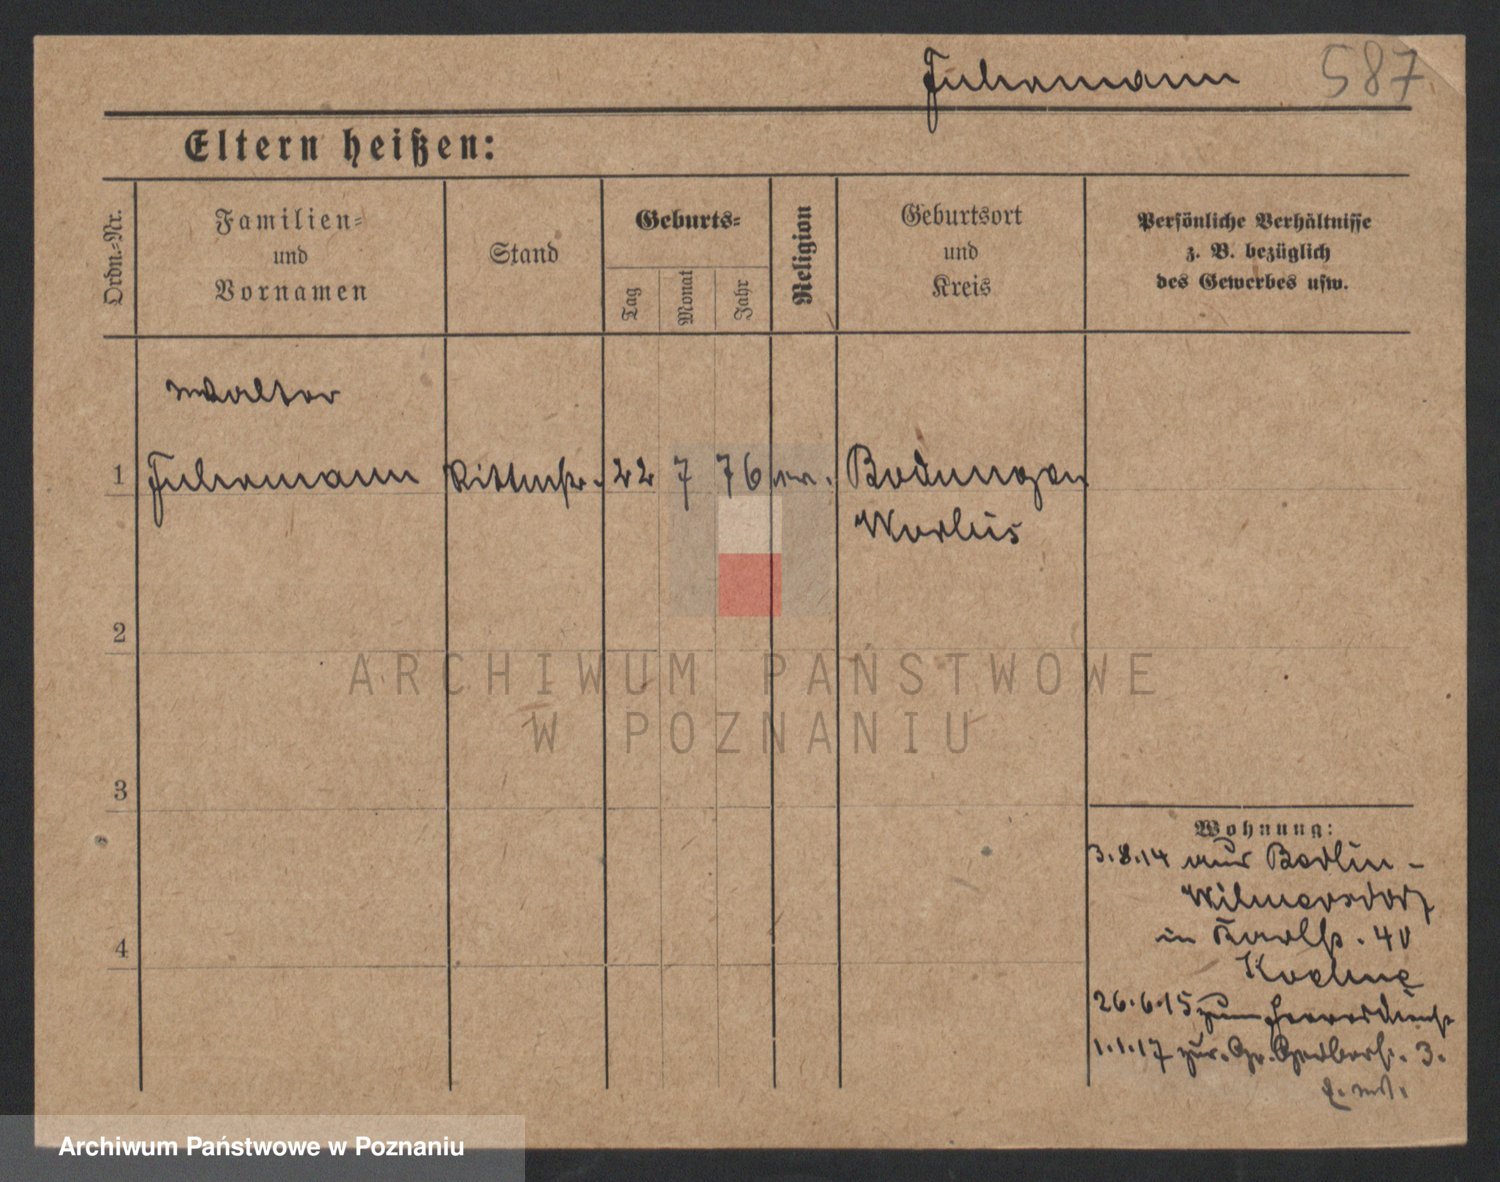 Fuhrmann 587
Eltern heißen:
Ordn.=Nr.
Familien=
und
Vornamen
Stand
Geburts=
Tag
Monat
Jahr
Religion
Geburtsort
und
Kreis
Persönliche Verhältnisse
z. B. bezüglich
des Gewerbes usw.
Walter
1 Fuhrmann Rittmstr. 22 7 76 ev. Bodungen
Worbis
2
ARCHIWUM PAŃSTWOWE
W POZNANIU
3
Wohnung:
3.8.14 aus Berlin-
Wilmersdorf
in Karlstr. 40
26.6.15 zum Heeresdienst
1.1.17 zur. Gr. Gerberstr. 3.
4
Archiwum Państwowe w Poznaniu